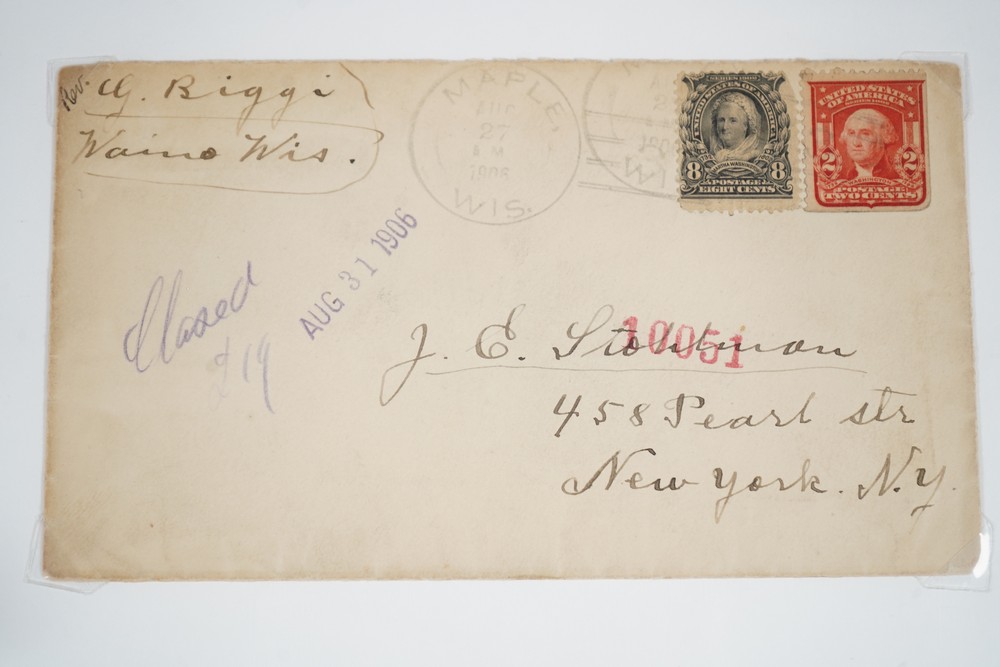 Rev. G. Biggi
Waino Wis.
MAPLE,
AUG
27
A M
1906
WIS.
SERIES 1902
UNITED STATES OF AMERICA
MARTHA WASHINGTON
8 8
POSTAGE
EIGHT CENTS
UNITED STATES
OF AMERICA
2 2
POSTAGE
TWO CENTS
AUG 31 1906
Closed
J. E. Stohlman
10051
458 Pearl str
New York. N.Y.